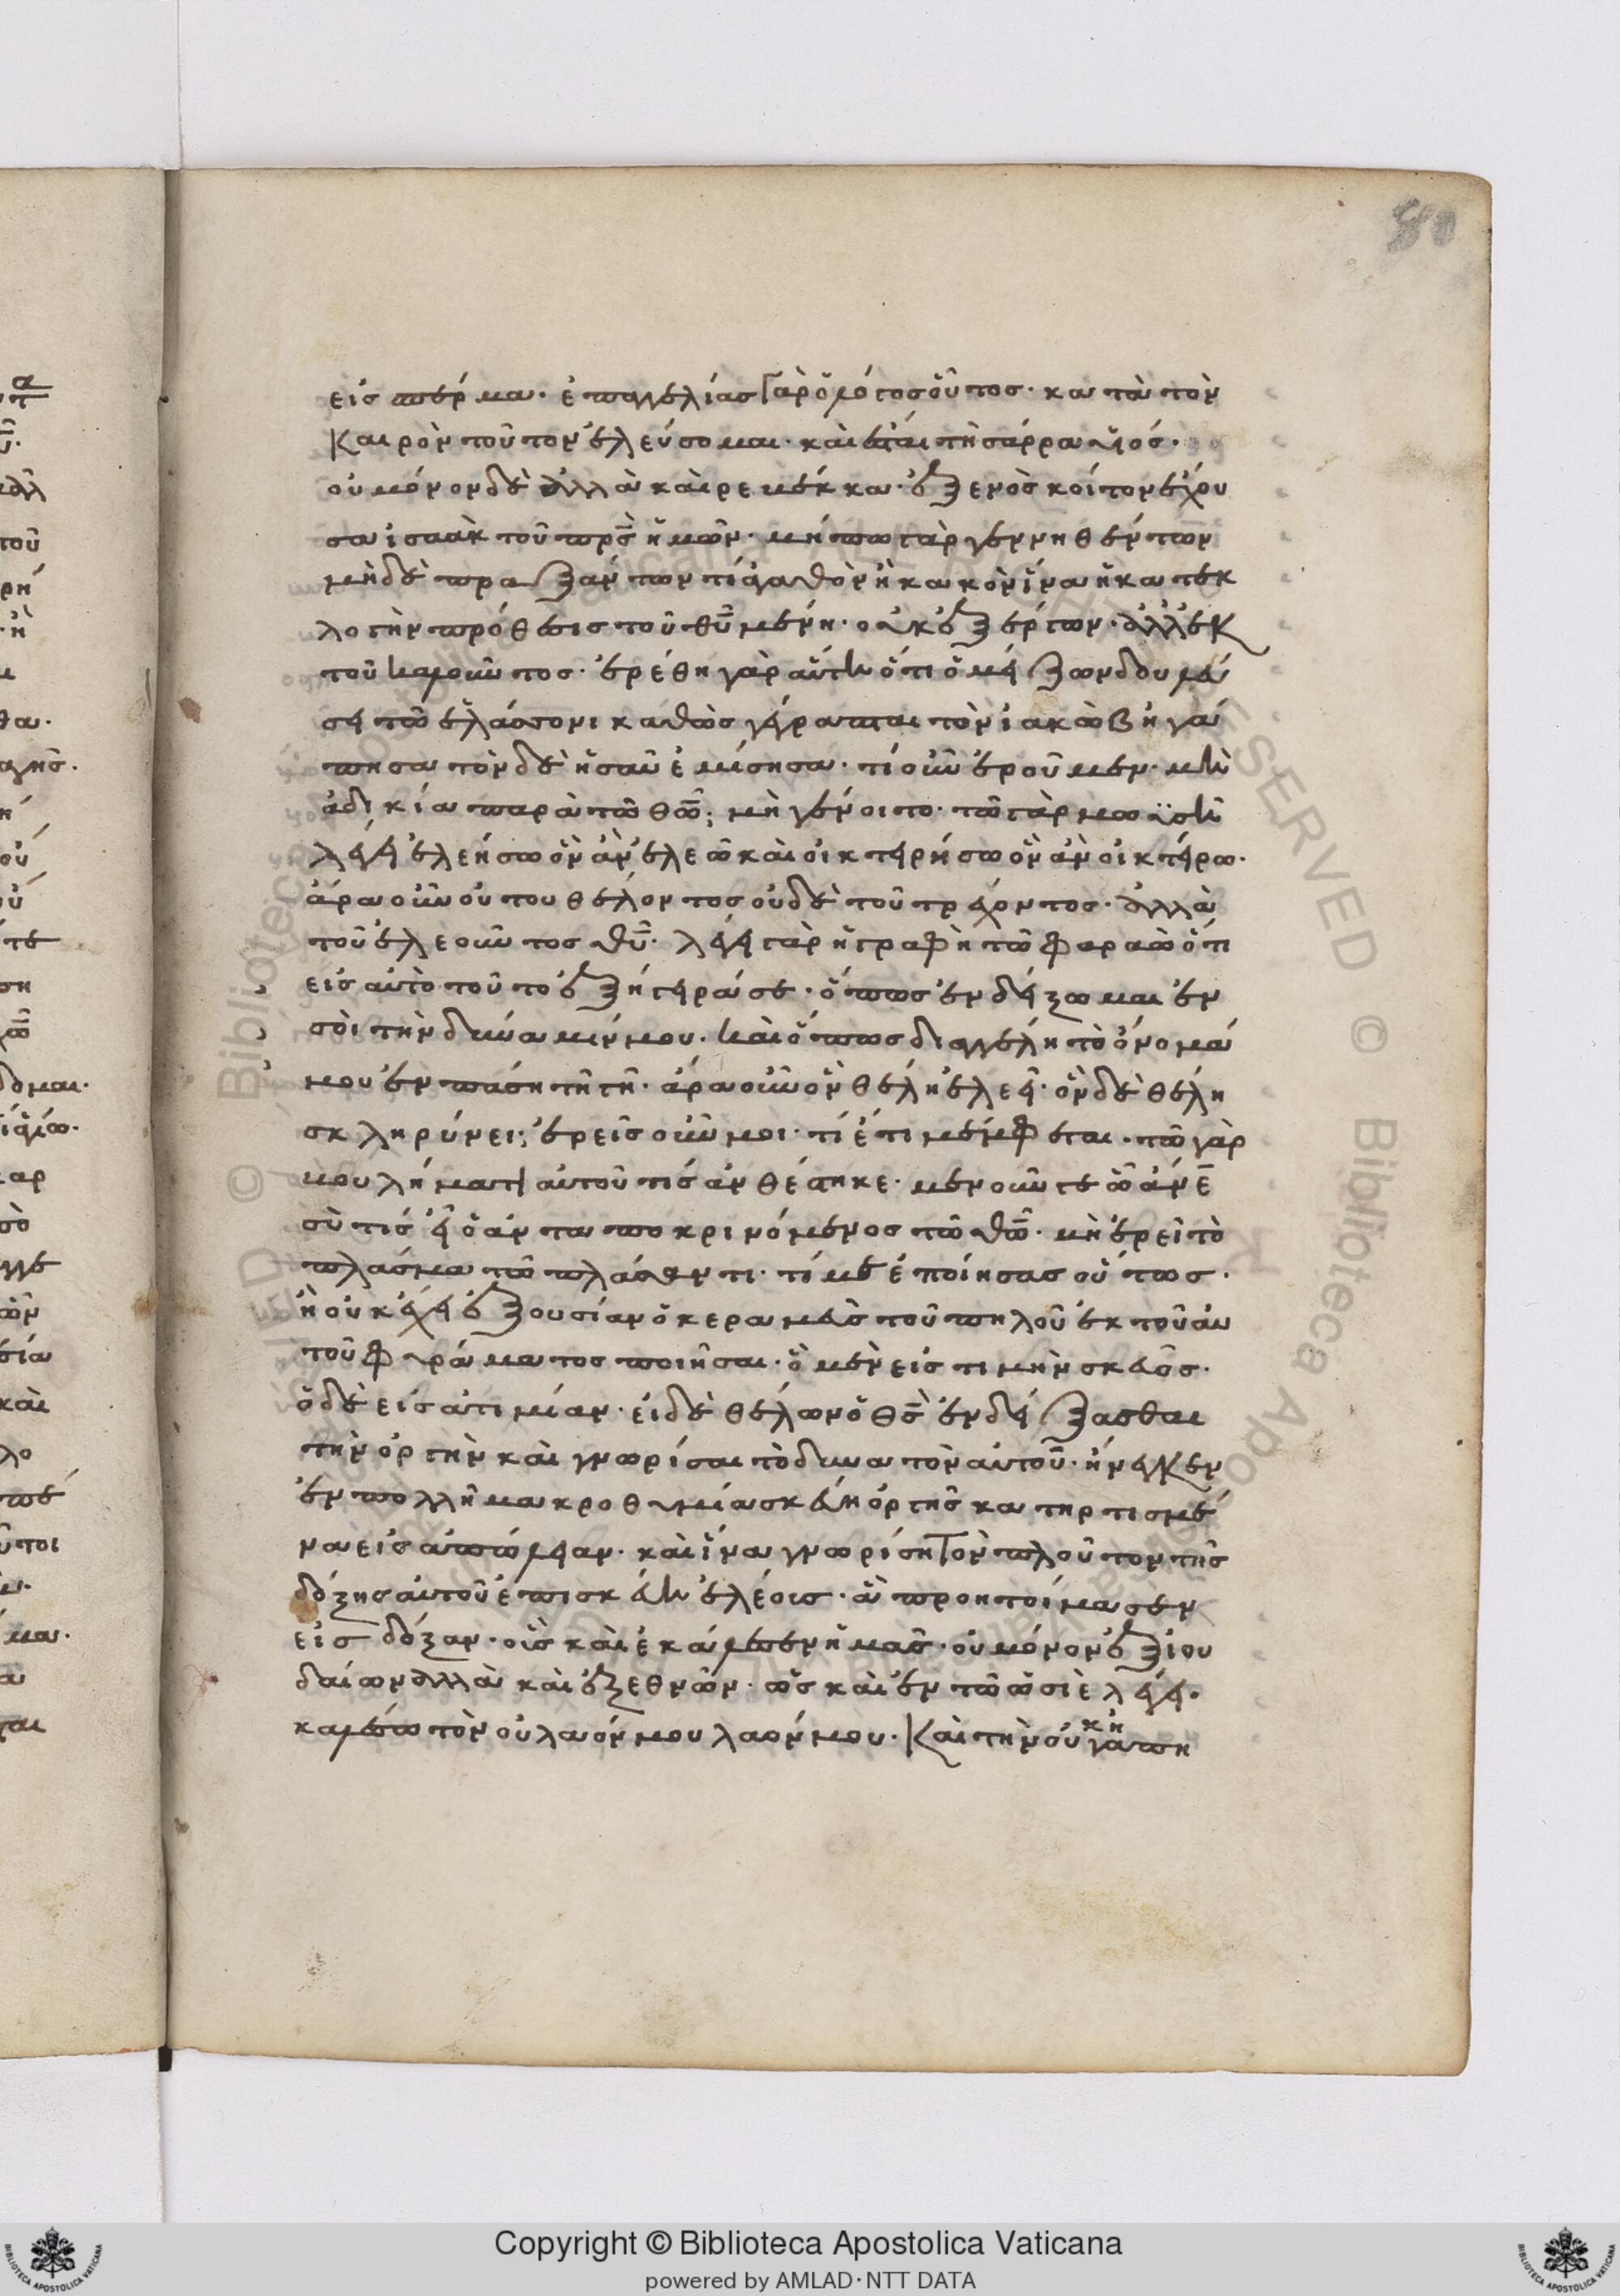 80
εἰς σπέρμα· ἐπαγγελίας γὰρ ὁ λόγος οὗτος· κατὰ τὸν
καιρὸν τοῦτον ἐλεύσομαι· καὶ ἔσται τῆ σάρρα υἱός·
οὐ μόνον δὲ ἀλλὰ καὶ ρεμέκκα· ἐξ ενὸς κοίτον ἔχου
σα ἰσαὰκ τοῦ πρ̅ς ἡμῶν· μήπω γὰρ γεννηθέντων
μὴδὲ πραξάντων τὶ ἀγαθὸν ἢ κακὸν ἵνα ἡ κατ εκ
λογὴν πρόθεσις τοῦ θ̅υ μένη· οὐκ ἐξ ἔργων· ἀλλ ἐκ
τοῦ καλοῦντος· ἐρέθη γὰρ αὐτῆ ὅτι ὁ μείζων δουλεύ
σει τῶ ἐλάσσονι καθὼς γέγραπται τὸν ἰακὼβ ἠγά
πησα τὸν δὲ ἡσαῦ ἐμίσησα· τί οὖν ἐροῦμεν· μὴ
ἀδικία παρὰ τῶ θ̅ω; μὴ γένοιτο· τῶ γὰρ μωϋσῆ
λέγει ἐλεήσω ὃν ἂν ἐλεῶ καὶ οἰκτειρήσω ὃν ἂν οἰκτείρω·
ἄρα οὖν οὐ του θέλοντος οὐδὲ τοῦ τρέχοντος· ἀλλὰ
τοῦ ἐλεοῦντος θ̅υ· λέγει γὰρ ἡ γραφὴ τῶ φαραὼ ὅτι
εἰς αὐτὸ τοῦτο ἐξήγειρά σε· ὅπως ἐνδείξωμαι ἐν
σοὶ τὴν δύναμίν μου· καὶ ὅπως διαγγέλη τὸ ὄνομά
μου ἐν πάση τῆ γῆ· ἄρα οὖν ὃν θέλη ἐλεεῖ· ὃν δὲ θέλη
σκληρύνει; ἐρεῖς οὖν μοι· τί ἔτι μέμφεται· τῶ γὰρ
βουλήματι αὐτοῦ τίς ἀνθέστηκε· μενοῦν γε ὦ ἄν̅ε
σὺ τίς εἶ ὁ ἀνταποκρινόμενος τῶ θ̅ω· μὴ ἐρεῖ τὸ
πλάσμα τῶ πλάσαντι· τί με ἐποίησας οὕτως·
ἢ οὐκ ἔχει ἐξουσίαν ὁ κεραμεὺς τοῦ πηλοῦ ἐκ τοῦ αὐ
τοῦ φυράματος ποιῆσαι· ὃ μὲν εἰς τιμὴν σκεῦος·
ὃ δὲ εἰς ἀτιμίαν· εἰ δὲ θέλων ὁ θ̅ς ἐνδείξασθαι
τὴν ὀργὴν καὶ γνωρίσαι τὸ δυνατὸν αὐτοῦ· ἤνεγκεν
ἐν πολλῆ μακροθυμία σκεύη ὀργῆς κατηρτισμέ
να εἰς ἀπώλειαν· καὶ ἵνα γνωρίση τὸν πλοῦτον τῆς
δόξης αὐτοῦ ἐπι σκεύη ἐλέους· ἃ προητοίμασεν
εἰς δόξαν· οὓς καὶ ἐκάλεσεν ἡμᾶς· οὐ μόνον ἐξ ἰου
δαίων ἀλλὰ καὶ ἐξ εθνῶν· ὡς καὶ ἐν τῶ ὡσιὲ λέγει·
καλέσω τὸν οὐ λαόν μου λαόν μου· καὶ τὴν οὐκ ἠγαπη
Copyright © Biblioteca Apostolica Vaticana
powered by AMLAD·NTT DATA